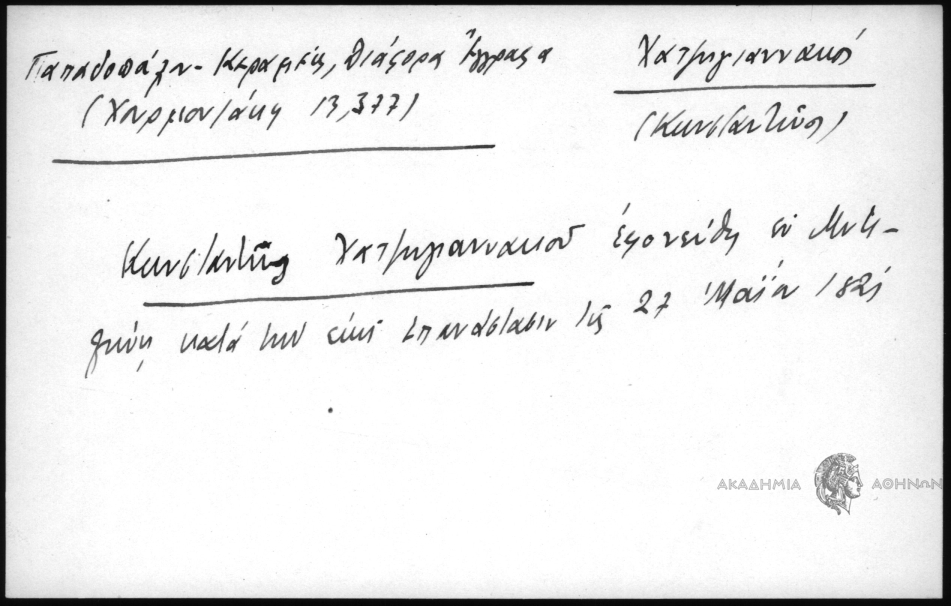 Παπαδοπούλου - Κεραμεύς, Διάφορα Ἔγγραφα
(Χουρμουζάκη 13, 377)
Χατζηγιαννακοῦ
(Κωνσταντῖνος)
Κωνσταντῖνος Χατζηγιαννακοῦ ἐφονεύθη ἐν Μυτι-
λήνῃ κατά τήν ἐκεῖ ἐπανάστασιν τῆς 27 Μαΐου 1821
ΑΚΑΔΗΜΙΑ ΑΘΗΝΩΝ